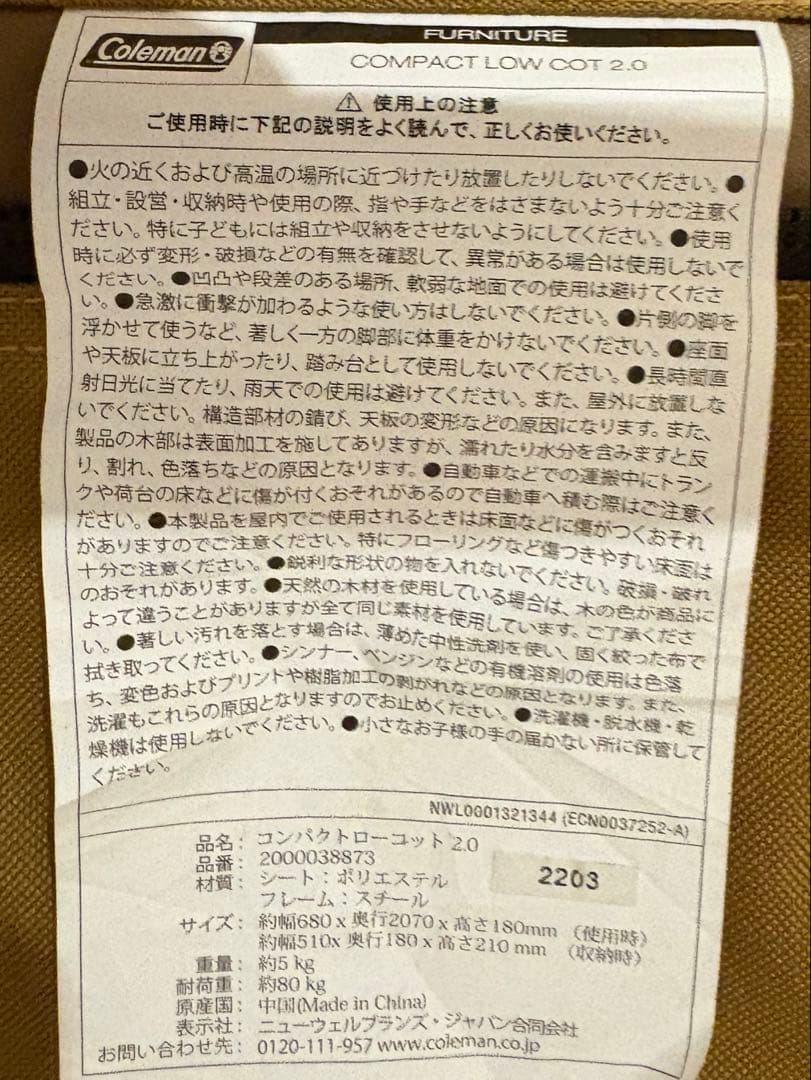 Coleman
FURNITURE
COMPACT LOW COT 2.0
⚠ 使用上の注意
ご使用時に下記の説明をよく読んで、正しくお使いください。
●火の近くおよび高温の場所に近づけたり放置したりしないでください。●
組立・設営・収納時や使用の際、指や手などをはさまないよう十分ご注意く
ださい。特に子どもには組立や収納をさせないようにしてください。●使用
時に必ず変形・破損などの有無を確認して、異常がある場合は使用しないで
ください。●凹凸や段差のある場所、軟弱な地面での使用は避けてくださ
い。●急激に衝撃が加わるような使い方はしないでください。●片側の脚を
浮かせて使うなど、著しく一方の脚部に体重をかけないでください。●座面
や天板に立ち上がったり、踏み台として使用しないでください。●長時間直
射日光に当てたり、雨天での使用は避けてください。また、屋外に放置しな
いでください。構造部材の錆び、天板の変形などの原因になります。また、
製品の木部は表面加工を施してありますが、濡れたり水分を含みますと反
り、割れ、色落ちなどの原因となります。●自動車などでの運搬中にトラン
クや荷台の床などに傷が付くおそれがあるので自動車へ積む際はご注意く
ださい。●本製品を屋内でご使用されるときは床面などに傷がつくおそれ
がありますのでご注意ください。特にフローリングなど傷つきやすい床面は
十分ご注意ください。●鋭利な形状の物を入れないでください。破損・破れ
のおそれがあります。●天然の木材を使用している場合は、木の色が商品に
よって違うことがありますが全て同じ素材を使用しています。ご了承くださ
い。●著しい汚れを落とす場合は、薄めた中性洗剤を使い、固く絞った布で
拭き取ってください。●シンナー、ベンジンなどの有機溶剤の使用は色落
ち、変色およびプリントや樹脂加工の剥がれなどの原因となります。また、
洗濯もこれらの原因となりますのでお止めください。●洗濯機・脱水機・乾
燥機は使用しないでください。●小さなお子様の手の届かない所に保管して
ください。
NWL0001321344 (ECN0037252-A)
品名: コンパクトローコット 2.0
品番: 2000038873
材質: シート：ポリエステル
フレーム：スチール
2203
サイズ: 約幅680 x 奥行2070 x 高さ180mm （使用時）
約幅510x 奥行180 x 高さ210 mm （収納時）
重量: 約5 kg
耐荷重: 約80 kg
原産国: 中国(Made in China)
表示社: ニューウェルブランズ・ジャパン合同会社
お問い合わせ先: 0120-111-957 www.coleman.co.jp